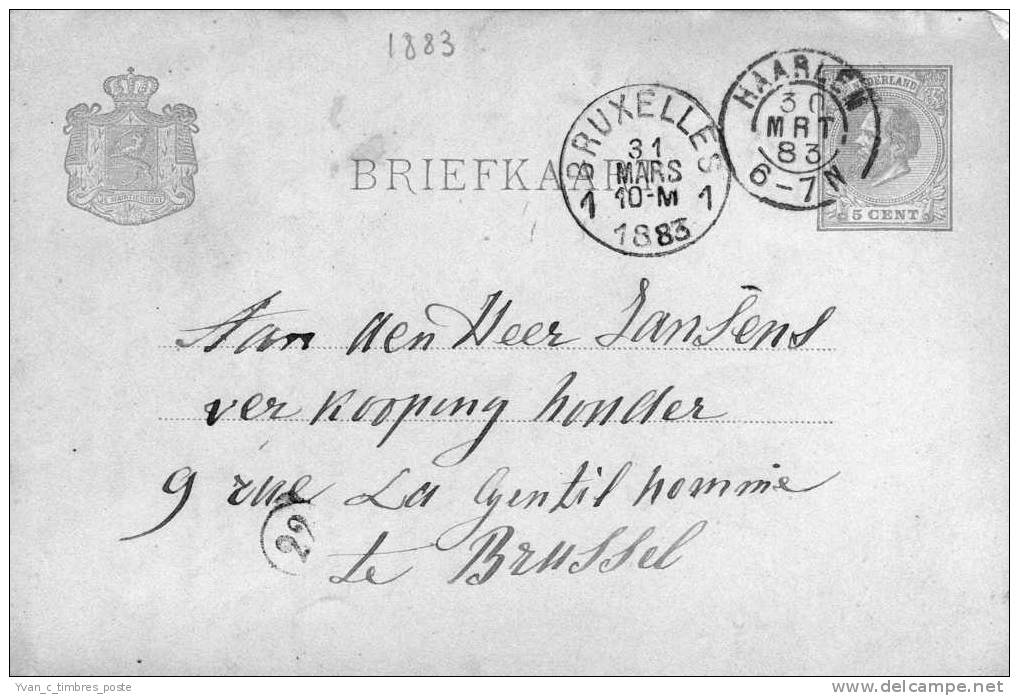 1883
NEDERLAND
5 CENT
HAARLEM
30
MRT
83
6-7N
BRUXELLES
31
MARS
10-M
1 1
1883
BRIEFKAART
Aan den Heer Jansens
ver kooping honder
9 rue La Gentil homme
te Brussel
22
Yvan_c_timbres_poste
delcampe.net